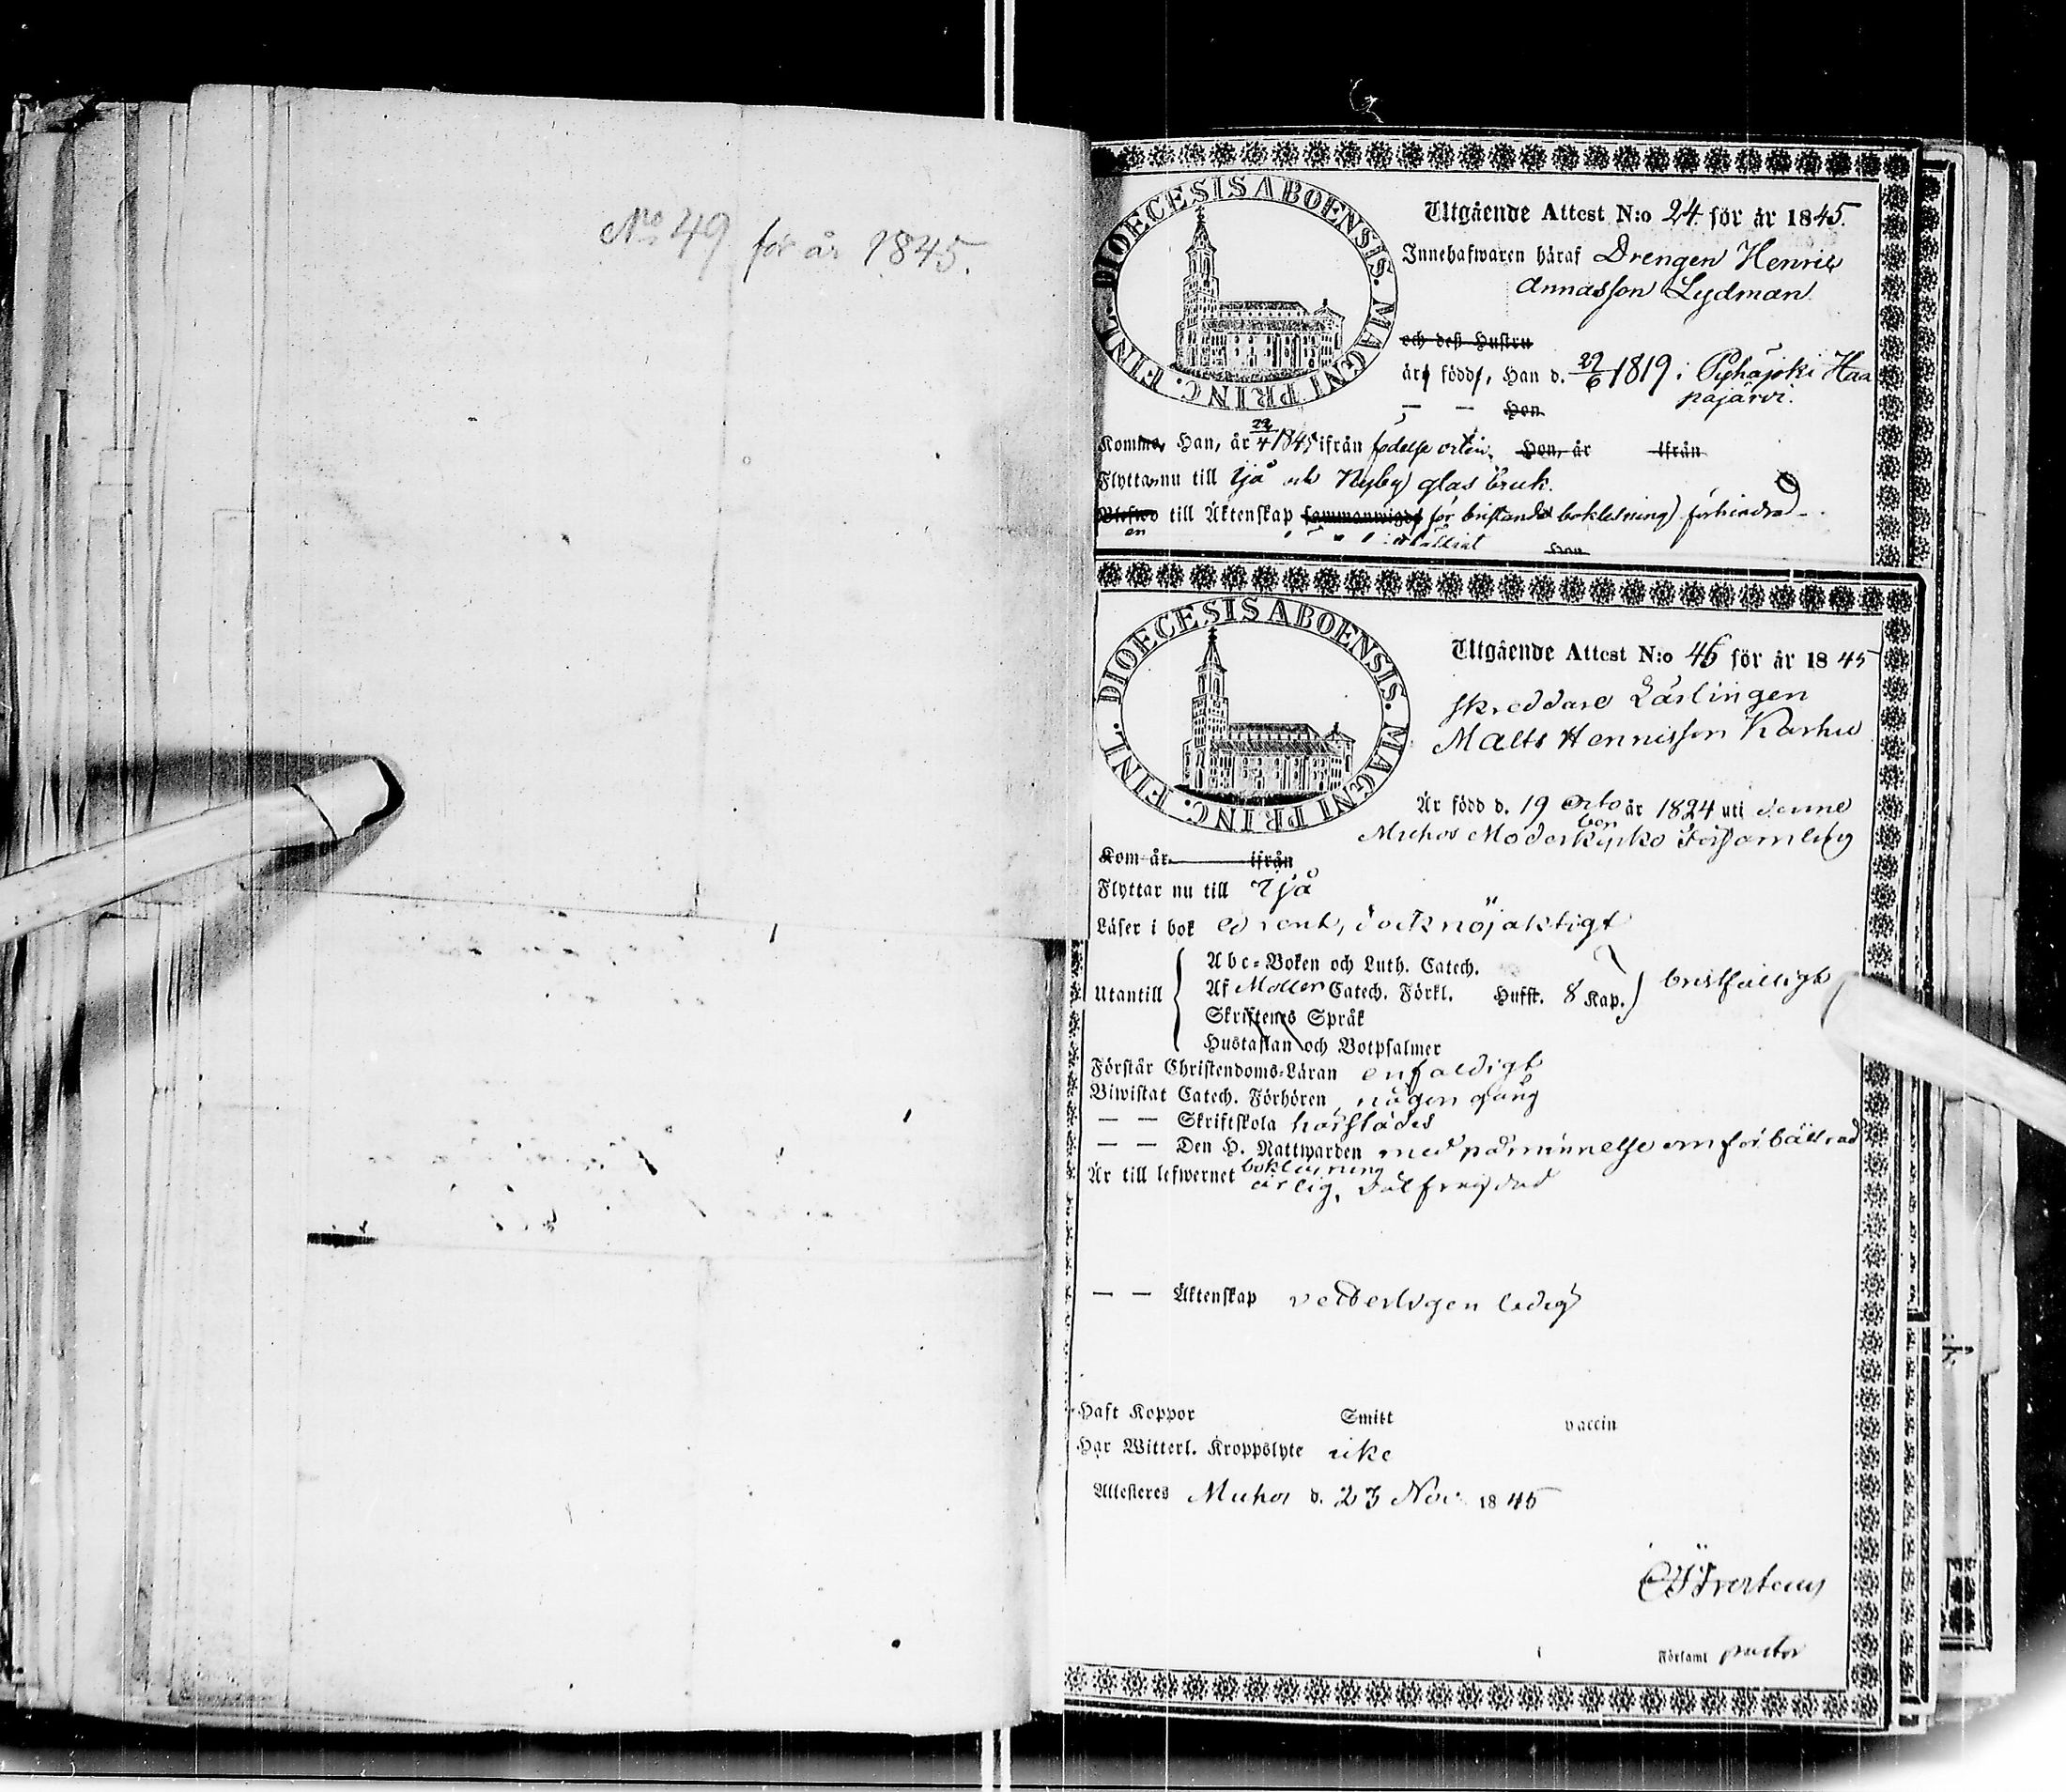 No 49 för år 1845.
DIOECESIS ABOENSIS. MAGNI PRINC. FINL.
Utgående Attest N:o 24 för år 1845.
Innehafwaren häraf Drengen Henric
Annasson Lydman
och deß Hustru
är född, Han d. 29/6 1819 i Pyhäjoki Haa
pajärvi.
— — Hon
Komme, Han, år 1845 ifrån födelse orten. Hon, år ifrån
Flytta nu till Ijå och Nyby glas bruk.
till Äktenskap sammanwigde för bristande bokläsning förhindrad.
en
Hon
DIOECESIS ABOENSIS. MAGNI PRINC. FINL.
Utgående Attest N:o 46 för år 1845
Skreddare Lärlingen
Matts Karhu
Är född d. 19 Octo
ber år 1824 uti denne
Muhos Moderkyrko Församling
Kom år ifrån
Flyttar nu till Ijå
Läser i bok ej rent, dock nöjaktigt
Utantill
Abc-Boken och Luth. Catech.
Af Möllers Catech. Förkl. Hufst. 8 Kap. bristfälligt
Skriftenes Språk
Hustaflan och Botpsalmer
Förstår Christendoms-Läran enfaldigt
Biwistat Catech. Förhören någon gång
— — Skriftskola härstädes
— — Den H. Nattwarden med påminnelse om förbättrad
bokläsning
Är till lefwernet ärlig, väl frejdad
— — Äktenskap veterligen ledig
Haft Koppor Smitt vaccin
Har Witterl. Kroppslyte icke
Attesteres Muhos d. 23 Nov 1845
Församl pastor